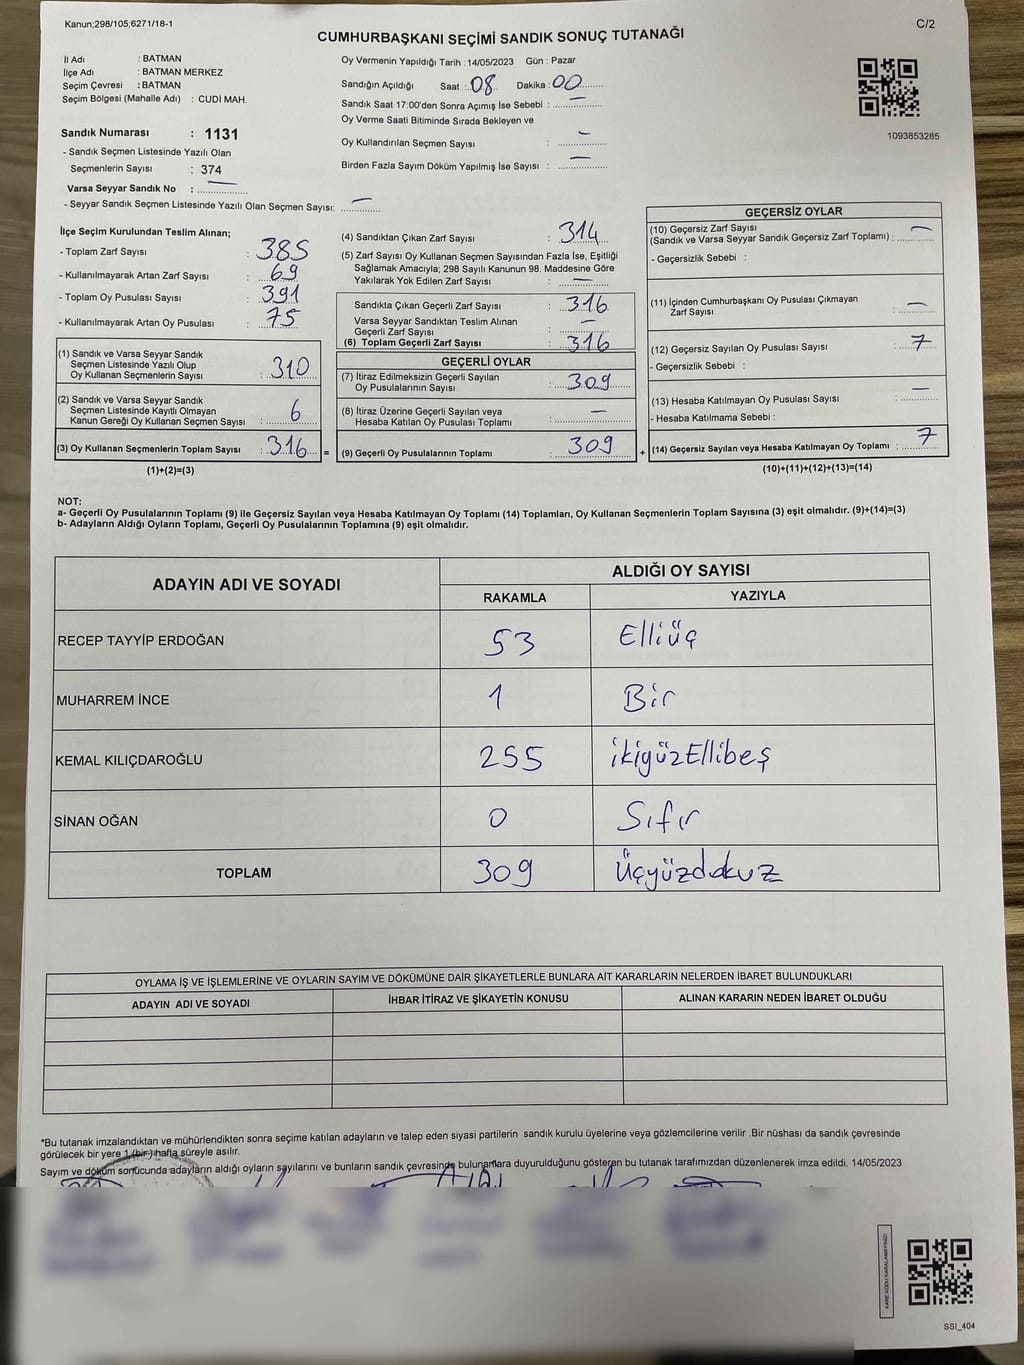 Kanun;298/105;6271/18-1
C/2
CUMHURBAŞKANI SEÇİMİ SANDIK SONUÇ TUTANAĞI
İl Adı : BATMAN
İlçe Adı : BATMAN MERKEZ
Seçim Çevresi : BATMAN
Seçim Bölgesi (Mahalle Adı) : CUDİ MAH.
Sandık Numarası : 1131
- Sandık Seçmen Listesinde Yazılı Olan
Seçmenlerin Sayısı : 374
Varsa Seyyar Sandık No : —
- Seyyar Sandık Seçmen Listesinde Yazılı Olan Seçmen Sayısı: —
Oy Vermenin Yapıldığı Tarih : 14/05/2023 Gün : Pazar
Sandığın Açıldığı Saat : 08 Dakika : 00
Sandık Saat 17:00'den Sonra Açımış İse Sebebi : —
Oy Verme Saati Bitiminde Sırada Bekleyen ve
Oy Kullandırılan Seçmen Sayısı : —
Birden Fazla Sayım Döküm Yapılmış İse Sayısı : —
1093853285
İlçe Seçim Kurulundan Teslim Alınan;
- Toplam Zarf Sayısı : 385
- Kullanılmayarak Artan Zarf Sayısı : 69
- Toplam Oy Pusulası Sayısı : 391
- Kullanılmayarak Artan Oy Pusulası : 75
(1) Sandık ve Varsa Seyyar Sandık
Seçmen Listesinde Yazılı Olup
Oy Kullanan Seçmenlerin Sayısı : 310
(2) Sandık ve Varsa Seyyar Sandık
Seçmen Listesinde Kayıtlı Olmayan
Kanun Gereği Oy Kullanan Seçmen Sayısı : 6
(3) Oy Kullanan Seçmenlerin Toplam Sayısı : 316 =
(1)+(2)=(3)
(4) Sandıktan Çıkan Zarf Sayısı : 314
(5) Zarf Sayısı Oy Kullanan Seçmen Sayısından Fazla İse, Eşitliği
Sağlamak Amacıyla; 298 Sayılı Kanunun 98. Maddesine Göre
Yakılarak Yok Edilen Zarf Sayısı : —
Sandıkta Çıkan Geçerli Zarf Sayısı : 316
Varsa Seyyar Sandıktan Teslim Alınan
Geçerli Zarf Sayısı : —
(6) Toplam Geçerli Zarf Sayısı : 316
GEÇERLİ OYLAR
(7) İtiraz Edilmeksizin Geçerli Sayılan
Oy Pusulalarının Sayısı : 309
(8) İtiraz Üzerine Geçerli Sayılan veya
Hesaba Katılan Oy Pusulası Toplamı : —
(9) Geçerli Oy Pusulalarının Toplamı : 309 +
GEÇERSİZ OYLAR
(10) Geçersiz Zarf Sayısı
(Sandık ve Varsa Seyyar Sandık Geçersiz Zarf Toplamı) : —
- Geçersizlik Sebebi :
(11) İçinden Cumhurbaşkanı Oy Pusulası Çıkmayan
Zarf Sayısı : —
(12) Geçersiz Sayılan Oy Pusulası Sayısı : 7
- Geçersizlik Sebebi :
(13) Hesaba Katılmayan Oy Pusulası Sayısı : —
- Hesaba Katılmama Sebebi :
(14) Geçersiz Sayılan veya Hesaba Katılmayan Oy Toplamı : 7
(10)+(11)+(12)+(13)=(14)
NOT:
a- Geçerli Oy Pusulalarının Toplamı (9) ile Geçersiz Sayılan veya Hesaba Katılmayan Oy Toplamı (14) Toplamları, Oy Kullanan Seçmenlerin Toplam Sayısına (3) eşit olmalıdır. (9)+(14)=(3)
b- Adayların Aldığı Oyların Toplamı, Geçerli Oy Pusulalarının Toplamına (9) eşit olmalıdır.
ADAYIN ADI VE SOYADI
ALDIĞI OY SAYISI
RAKAMLA YAZIYLA
RECEP TAYYİP ERDOĞAN 53 Elliüç
MUHARREM İNCE 1 Bir
KEMAL KILIÇDAROĞLU 255 ikiyüzEllibeş
SİNAN OĞAN 0 Sıfır
TOPLAM 309 Üçyüzdokuz
OYLAMA İŞ VE İŞLEMLERİNE VE OYLARIN SAYIM VE DÖKÜMÜNE DAİR ŞİKAYETLERLE BUNLARA AİT KARARLARIN NELERDEN İBARET BULUNDUKLARI
ADAYIN ADI VE SOYADI İHBAR İTİRAZ VE ŞİKAYETİN KONUSU ALINAN KARARIN NEDEN İBARET OLDUĞU
*Bu tutanak imzalandıktan ve mühürlendikten sonra seçime katılan adayların ve talep eden siyasi partilerin sandık kurulu üyelerine veya gözlemcilerine verilir .Bir nüshası da sandık çevresinde
görülecek bir yere 1 (bir) hafta süreyle asılır.
Sayım ve döküm sonucunda adayların aldığı oyların sayılarını ve bunların sandık çevresinde bulunanlara duyurulduğunu gösteren bu tutanak tarafımızdan düzenlenerek imza edildi. 14/05/2023
KARE KODU KARALAMAYINIZ!
SSI_404